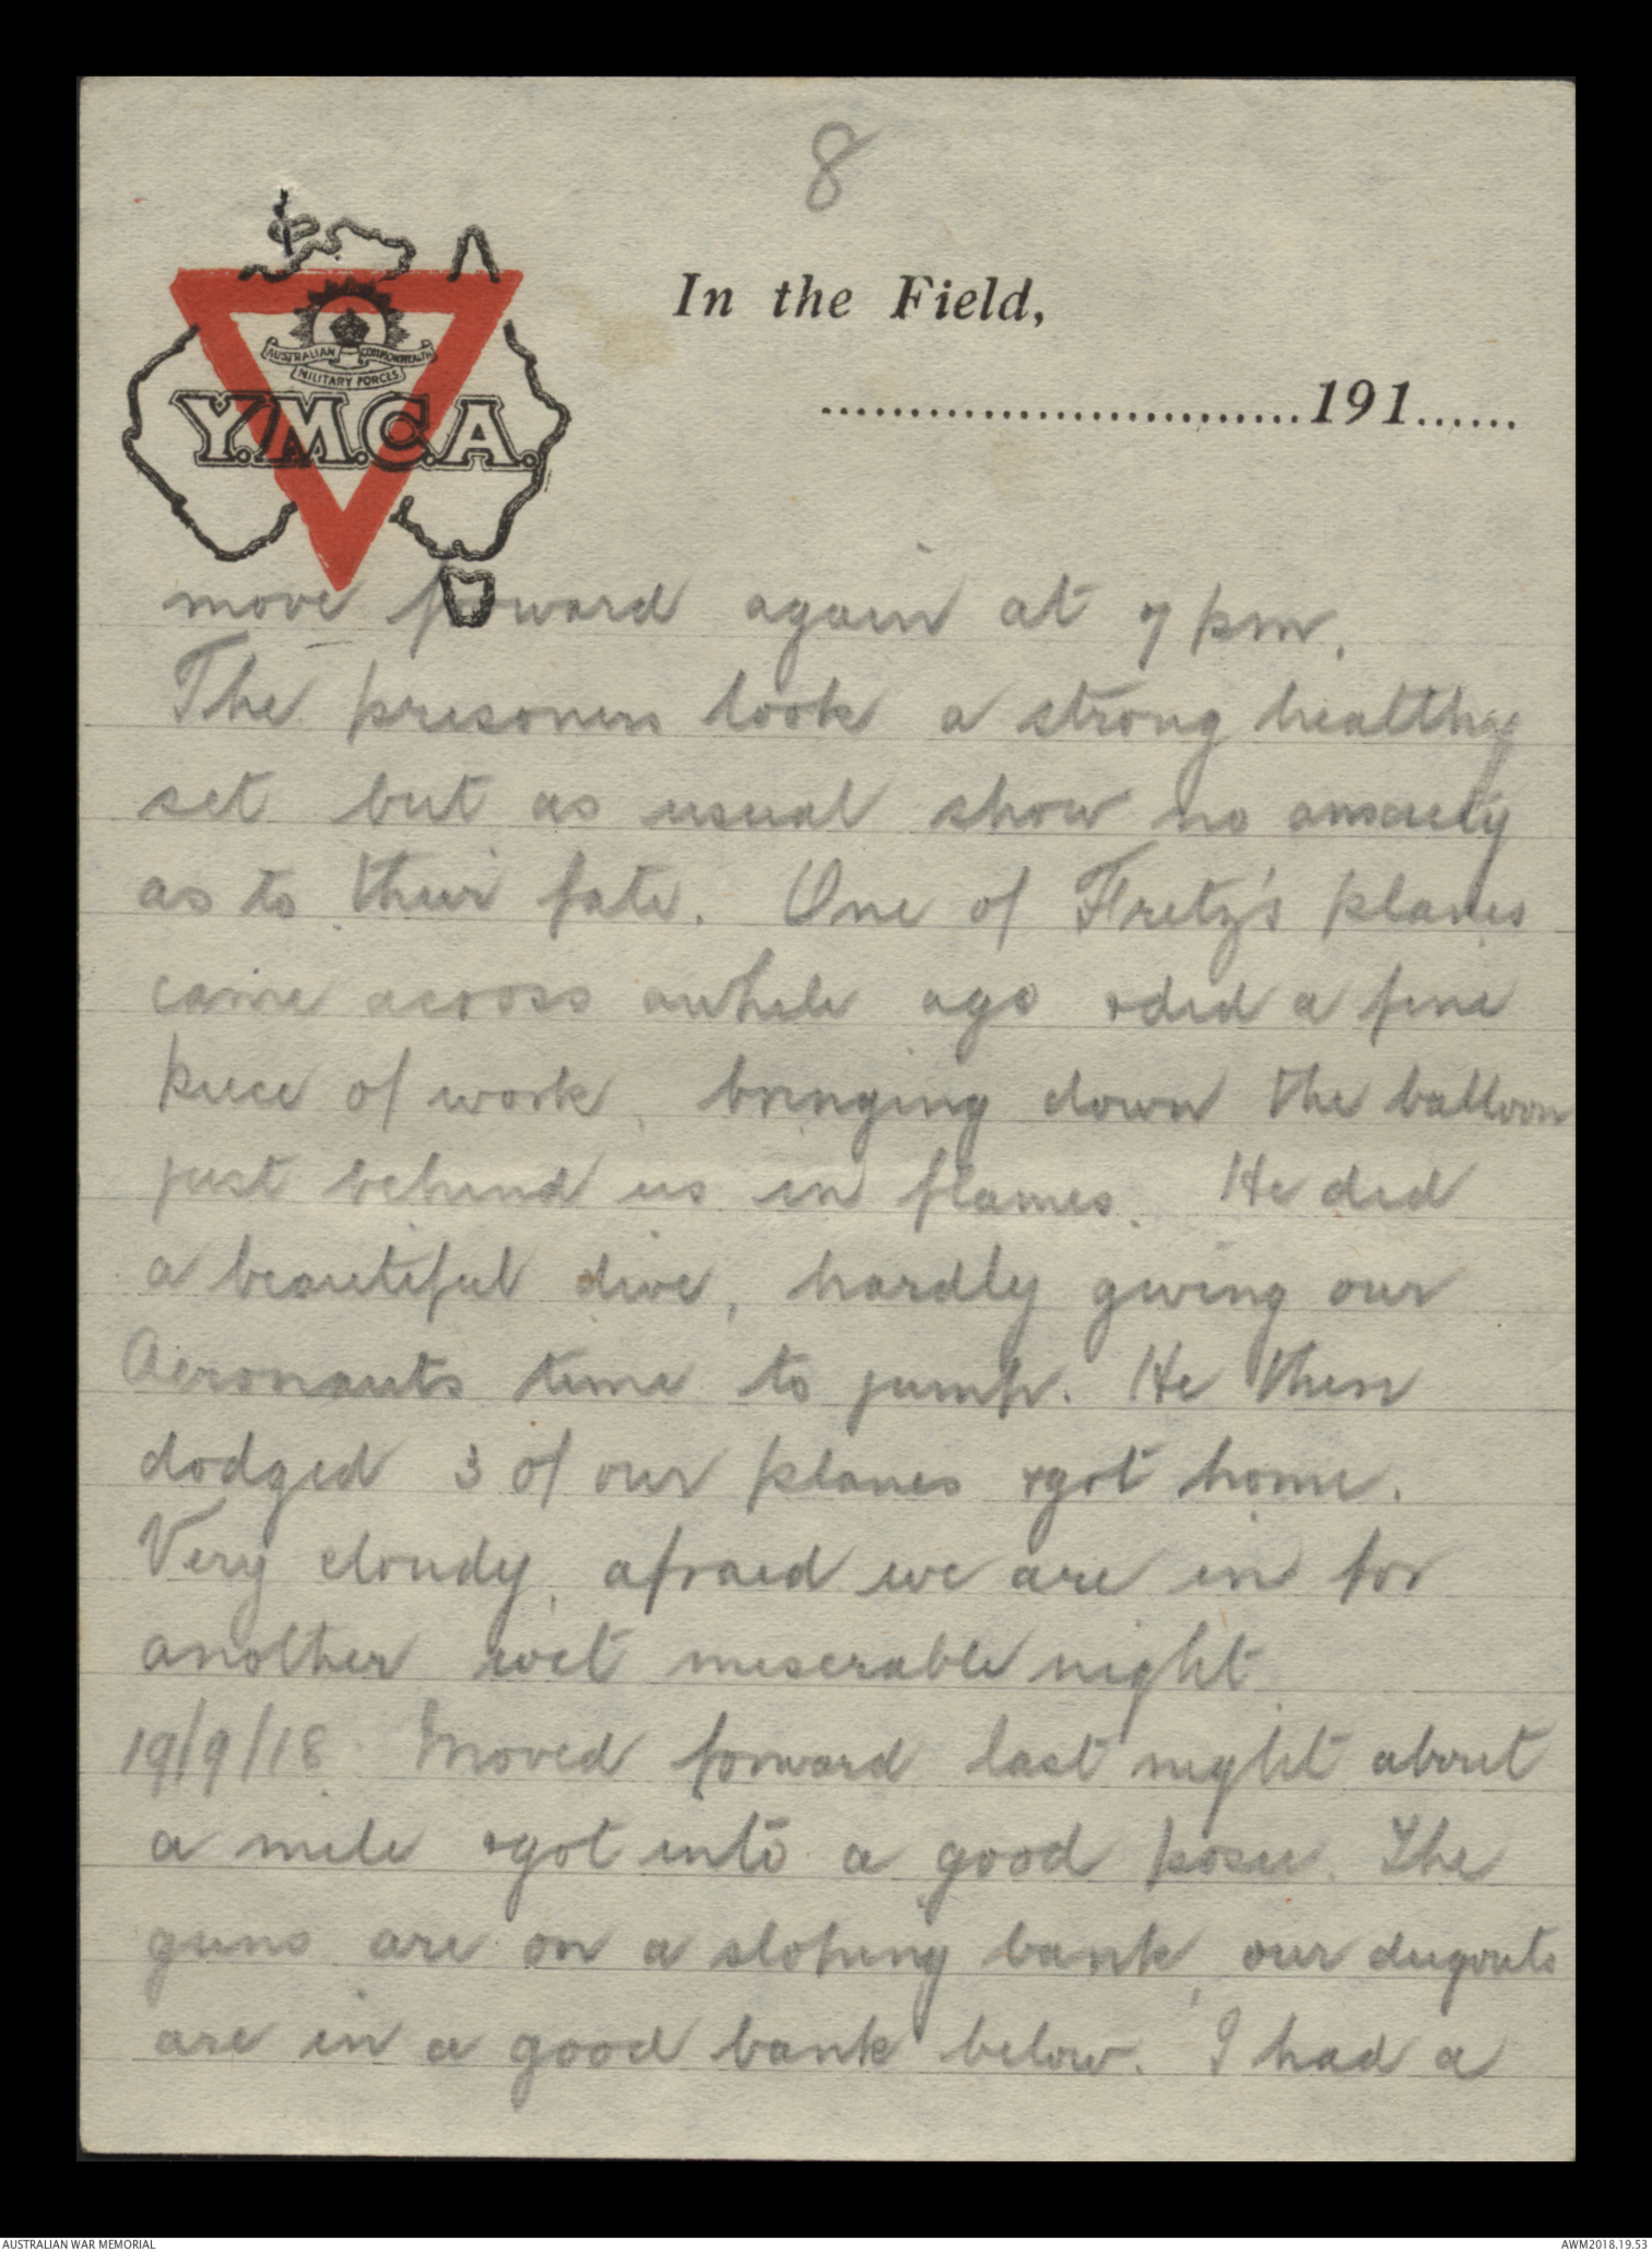 8
AUSTRALIAN COMMONWEALTH
MILITARY FORCES
Y.M.C.A.
In the Field,
............................191......
move forward again at 7 pm.
The prisoners look a strong healthy
set but as usual show no anxiety
as to their fate. One of Fritz's planes
came across awhile ago & did a fine
piece of work, bringing down the balloon
just behind us in flames. He did
a beautiful dive, hardly giving our
Aeronauts time to jump. He then
dodged 3 of our planes & got home.
Very cloudy, afraid we are in for
another wet miserable night.
19/9/18. Moved forward last night about
a mile & got into a good posie. The
guns are on a sloping bank, our dugouts
are in a good bank below. I had a
AUSTRALIAN WAR MEMORIAL
AWM2018.19.53